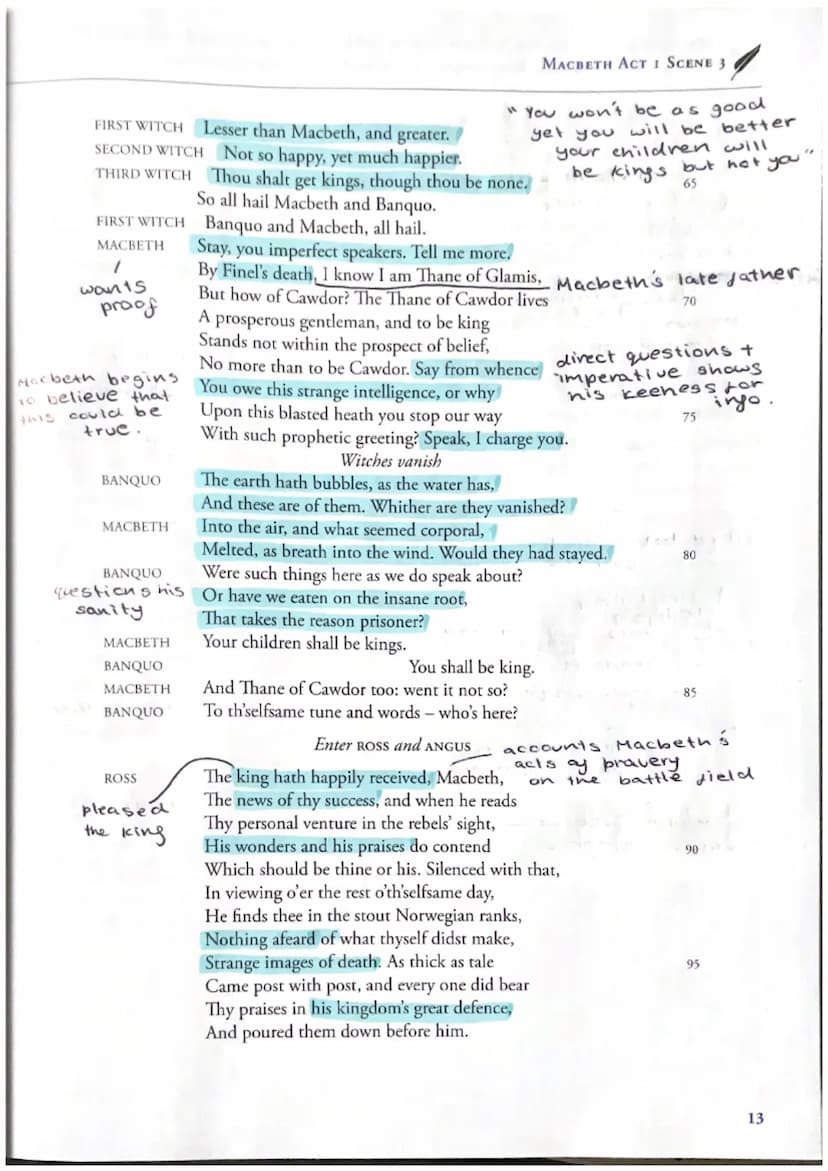 MACBETH ACT 1 SCENE 3
"You won't be as good
yet you will be better
your children will
be kings but not you"
FIRST WITCH Lesser than Macbeth, and greater.
SECOND WITCH Not so happy, yet much happier.
THIRD WITCH Thou shalt get kings, though thou be none. 65
So all hail Macbeth and Banquo.
FIRST WITCH Banquo and Macbeth, all hail.
MACBETH Stay, you imperfect speakers. Tell me more.
wants
proof
By Finel's death, I know I am Thane of Glamis,
Macbeth's late father
But how of Cawdor? The Thane of Cawdor lives 70
A prosperous gentleman, and to be king
Stands not within the prospect of belief,
No more than to be Cawdor. Say from whence
You owe this strange intelligence, or why
Upon this blasted heath you stop our way 75
With such prophetic greeting? Speak, I charge you.
direct questions +
imperative shows
his keeness for
info.
Macbeth begins
to believe that
this could be
true.
Witches vanish
BANQUO The earth hath bubbles, as the water has,
And these are of them. Whither are they vanished?
MACBETH Into the air, and what seemed corporal,
Melted, as breath into the wind. Would they had stayed. 80
BANQUO Were such things here as we do speak about?
Or have we eaten on the insane root,
That takes the reason prisoner?
questions his
sanity
MACBETH Your children shall be kings.
BANQUO You shall be king.
MACBETH And Thane of Cawdor too: went it not so? 85
BANQUO To th'selfsame tune and words – who's here?
Enter ROSS and ANGUS
accounts Macbeth's
acts of bravery
on the battle field
ROSS The king hath happily received, Macbeth,
The news of thy success, and when he reads
Thy personal venture in the rebels' sight,
His wonders and his praises do contend 90
Which should be thine or his. Silenced with that,
In viewing o'er the rest o'th'selfsame day,
He finds thee in the stout Norwegian ranks,
Nothing afeard of what thyself didst make,
Strange images of death. As thick as tale 95
Came post with post, and every one did bear
Thy praises in his kingdom's great defence,
And poured them down before him.
pleased
the king
13